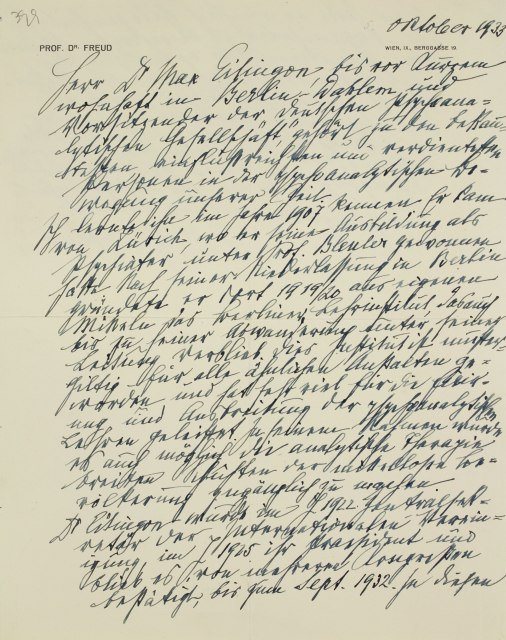 329
Oktober 1933
PROF. DR. FREUD
WIEN, IX., BERGGASSE 19.
Herr Dr Max Eitingon bis vor Kurzem
wohnhaft in Berlin-Dahlem und
Vorsitzender der deutschen psychoana-
lytischen Gesellschaft gehört zu den bekann-
testen einflußreichsten und verdientesten
Personen in der psychoanalytischen Be-
wegung unserer Zeit.
Ich lernte ihn im Jahre 1907 kennen Er kam
von Zürich, wo er seine Ausbildung als
Psychiater unter Prof. Bleuler gewonnen
hatte. Nach seiner Niederlassung in Berlin
gründete er dort 1919/20 aus eigenen
Mitteln das Berliner Lehrinstitut, das auch
bis zu seiner Abwanderung unter seiner
Leitung verblieb. Dies Institut ist muster-
giltig für alle ähnlichen Anstalten ge-
worden und hat sehr viel für die
und Ausbreitung der psychoanalytischen
Lehren geleistet. In seinem Rahmen wurde
es auch möglich die analytische Therapie
breiten Schichten der mittellosen Be-
völkerung zugänglich zu machen.
Dr Eitingon wurde im J 1922 Zentralsek-
retär der Internationalen Verein-
igung im J 1925 ihr Praesident und
blieb es, von mehreren Kongreßen
bestätigt, bis zum Sept. 1932. In diesen